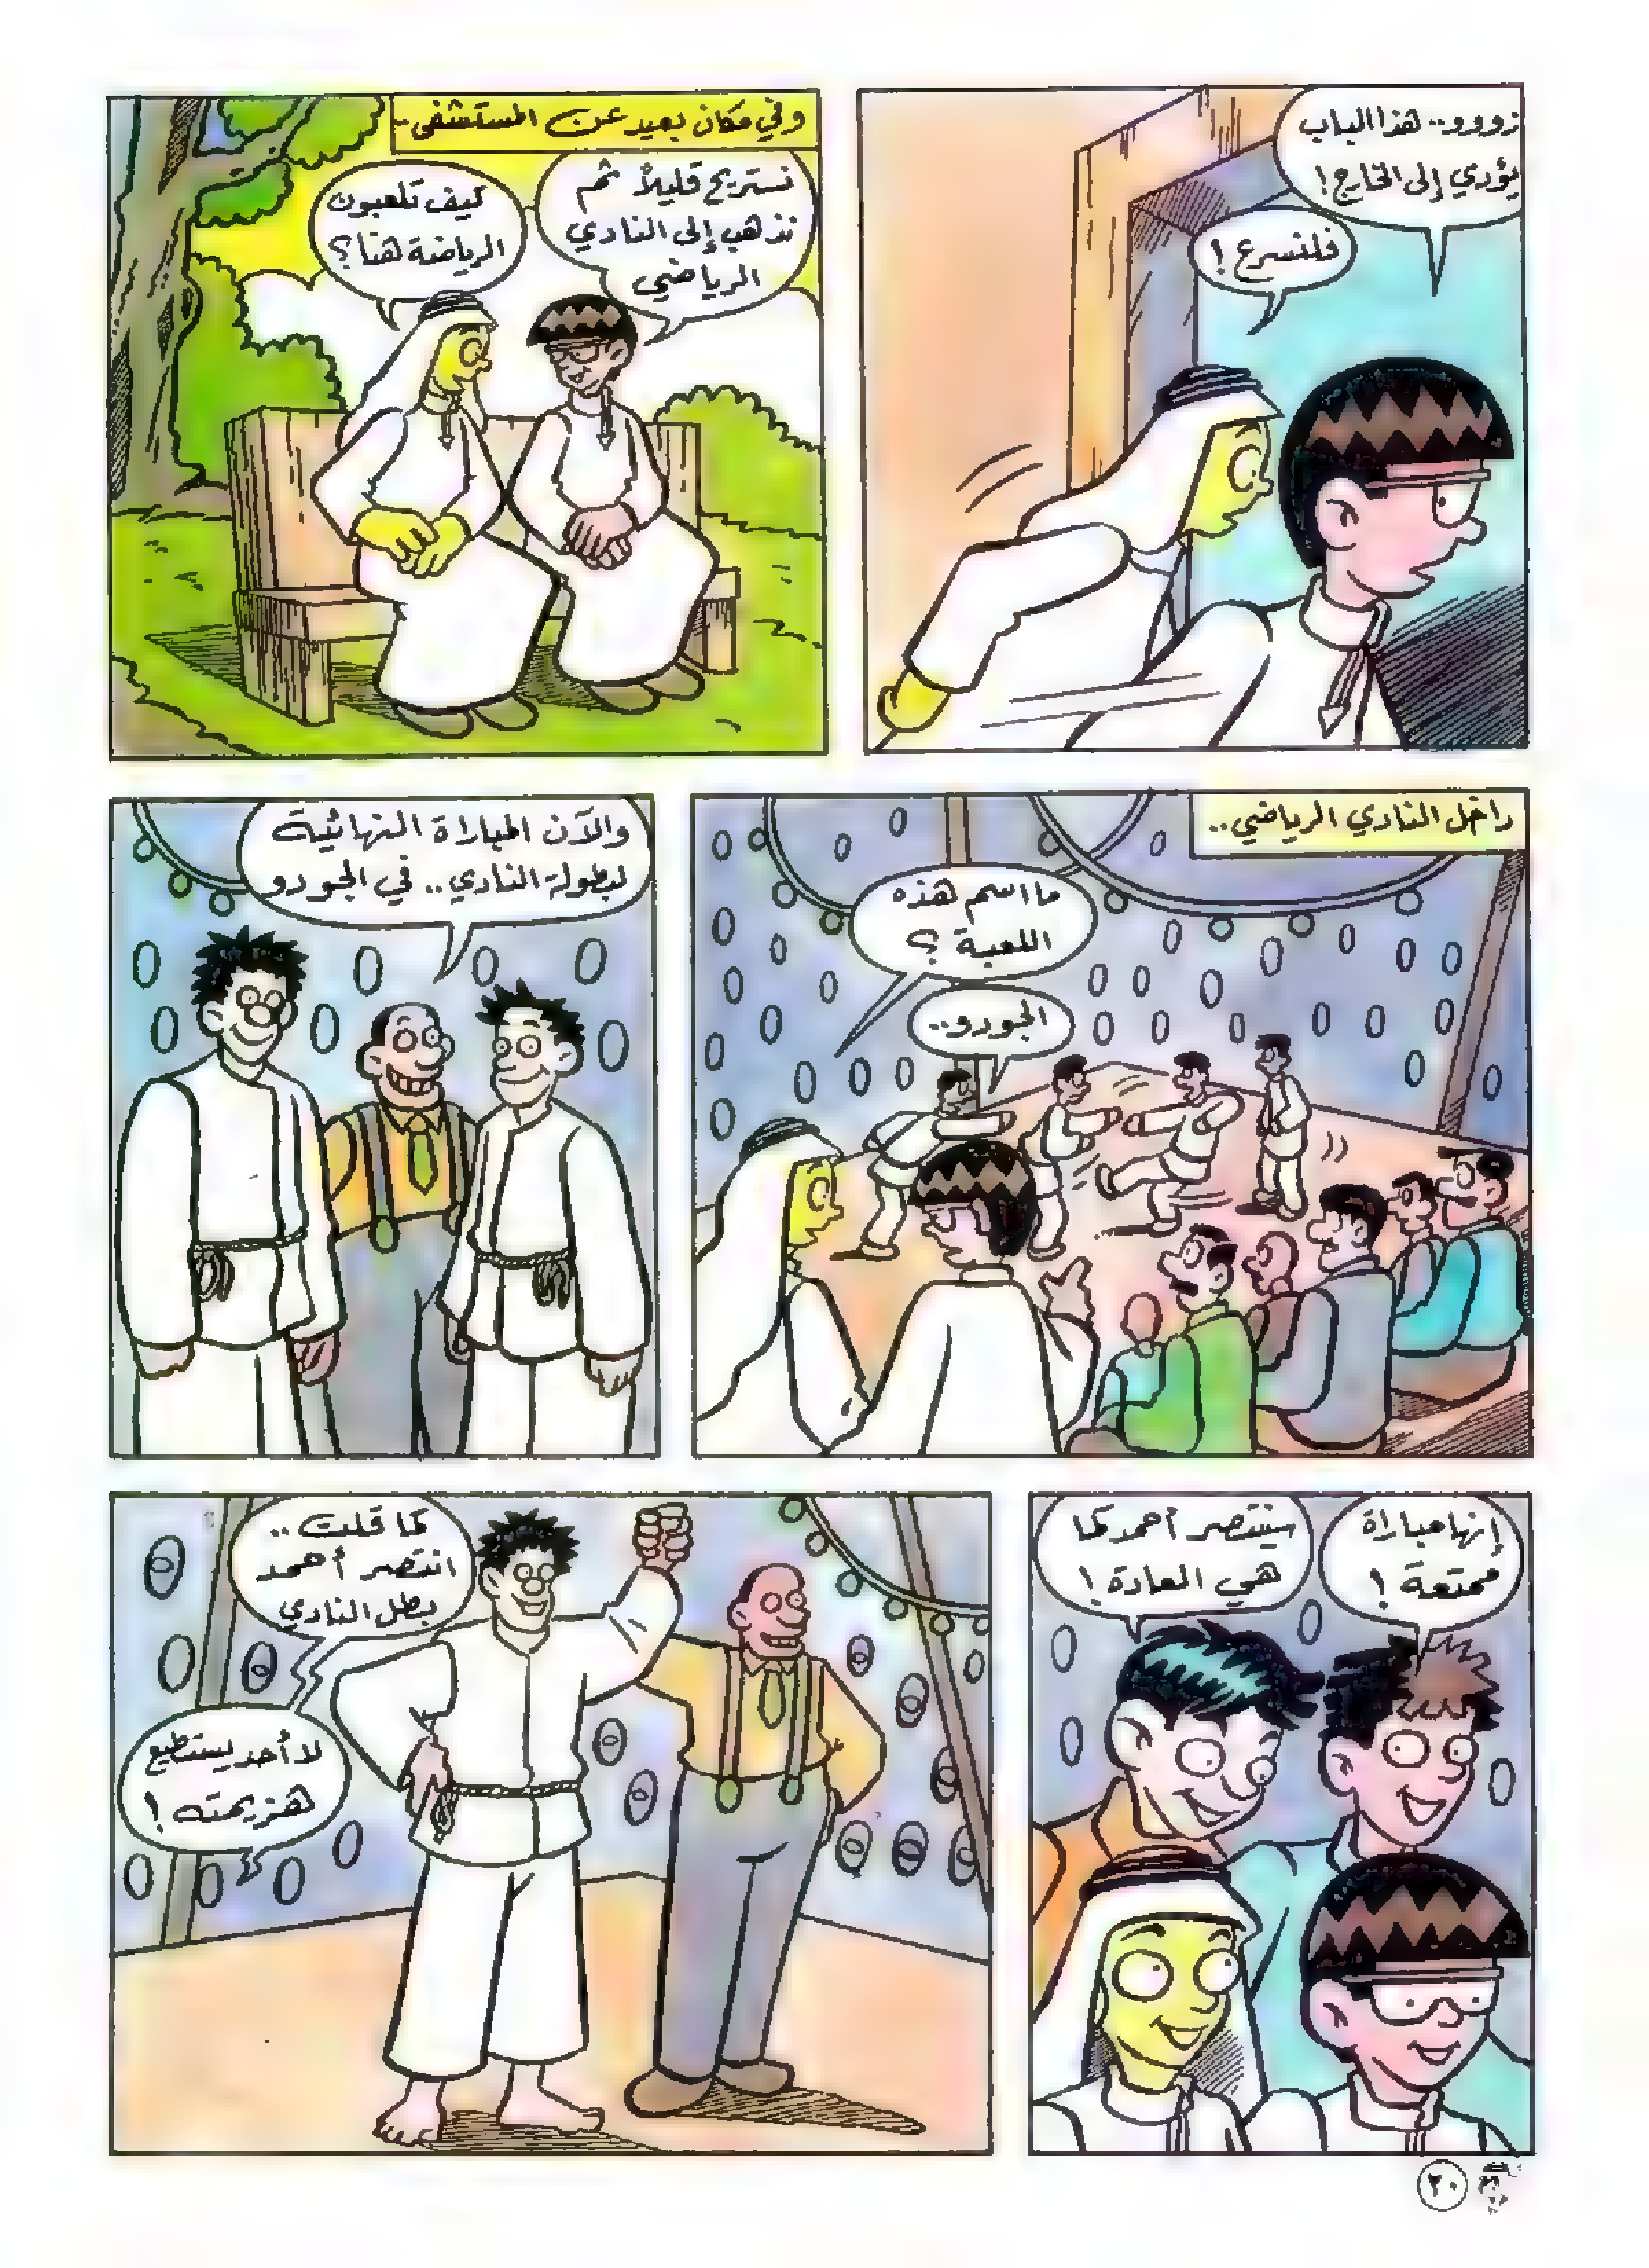 زووو.. هذا الباب
يؤدي إلى الخارج!
فلنسرع!
وفي مكان بعيد عن المستشفى..
نستريح قليلاً ثم
نذهب إلى النادي
الرياضي
كيف تلعبون
الرياضة هنا؟
داخل النادي الرياضي..
ما اسم هذه
اللعبة؟
الجودو..
والآن المباراة النهائية
لبطولة النادي.. في الجودو
إنها مباراة
ممتعة!
سينتصر أحمد كما
هي العادة!
كما قلت..
انتصر أحمد
بطل النادي
لا أحد يستطيع
هزيمته!
٢٠